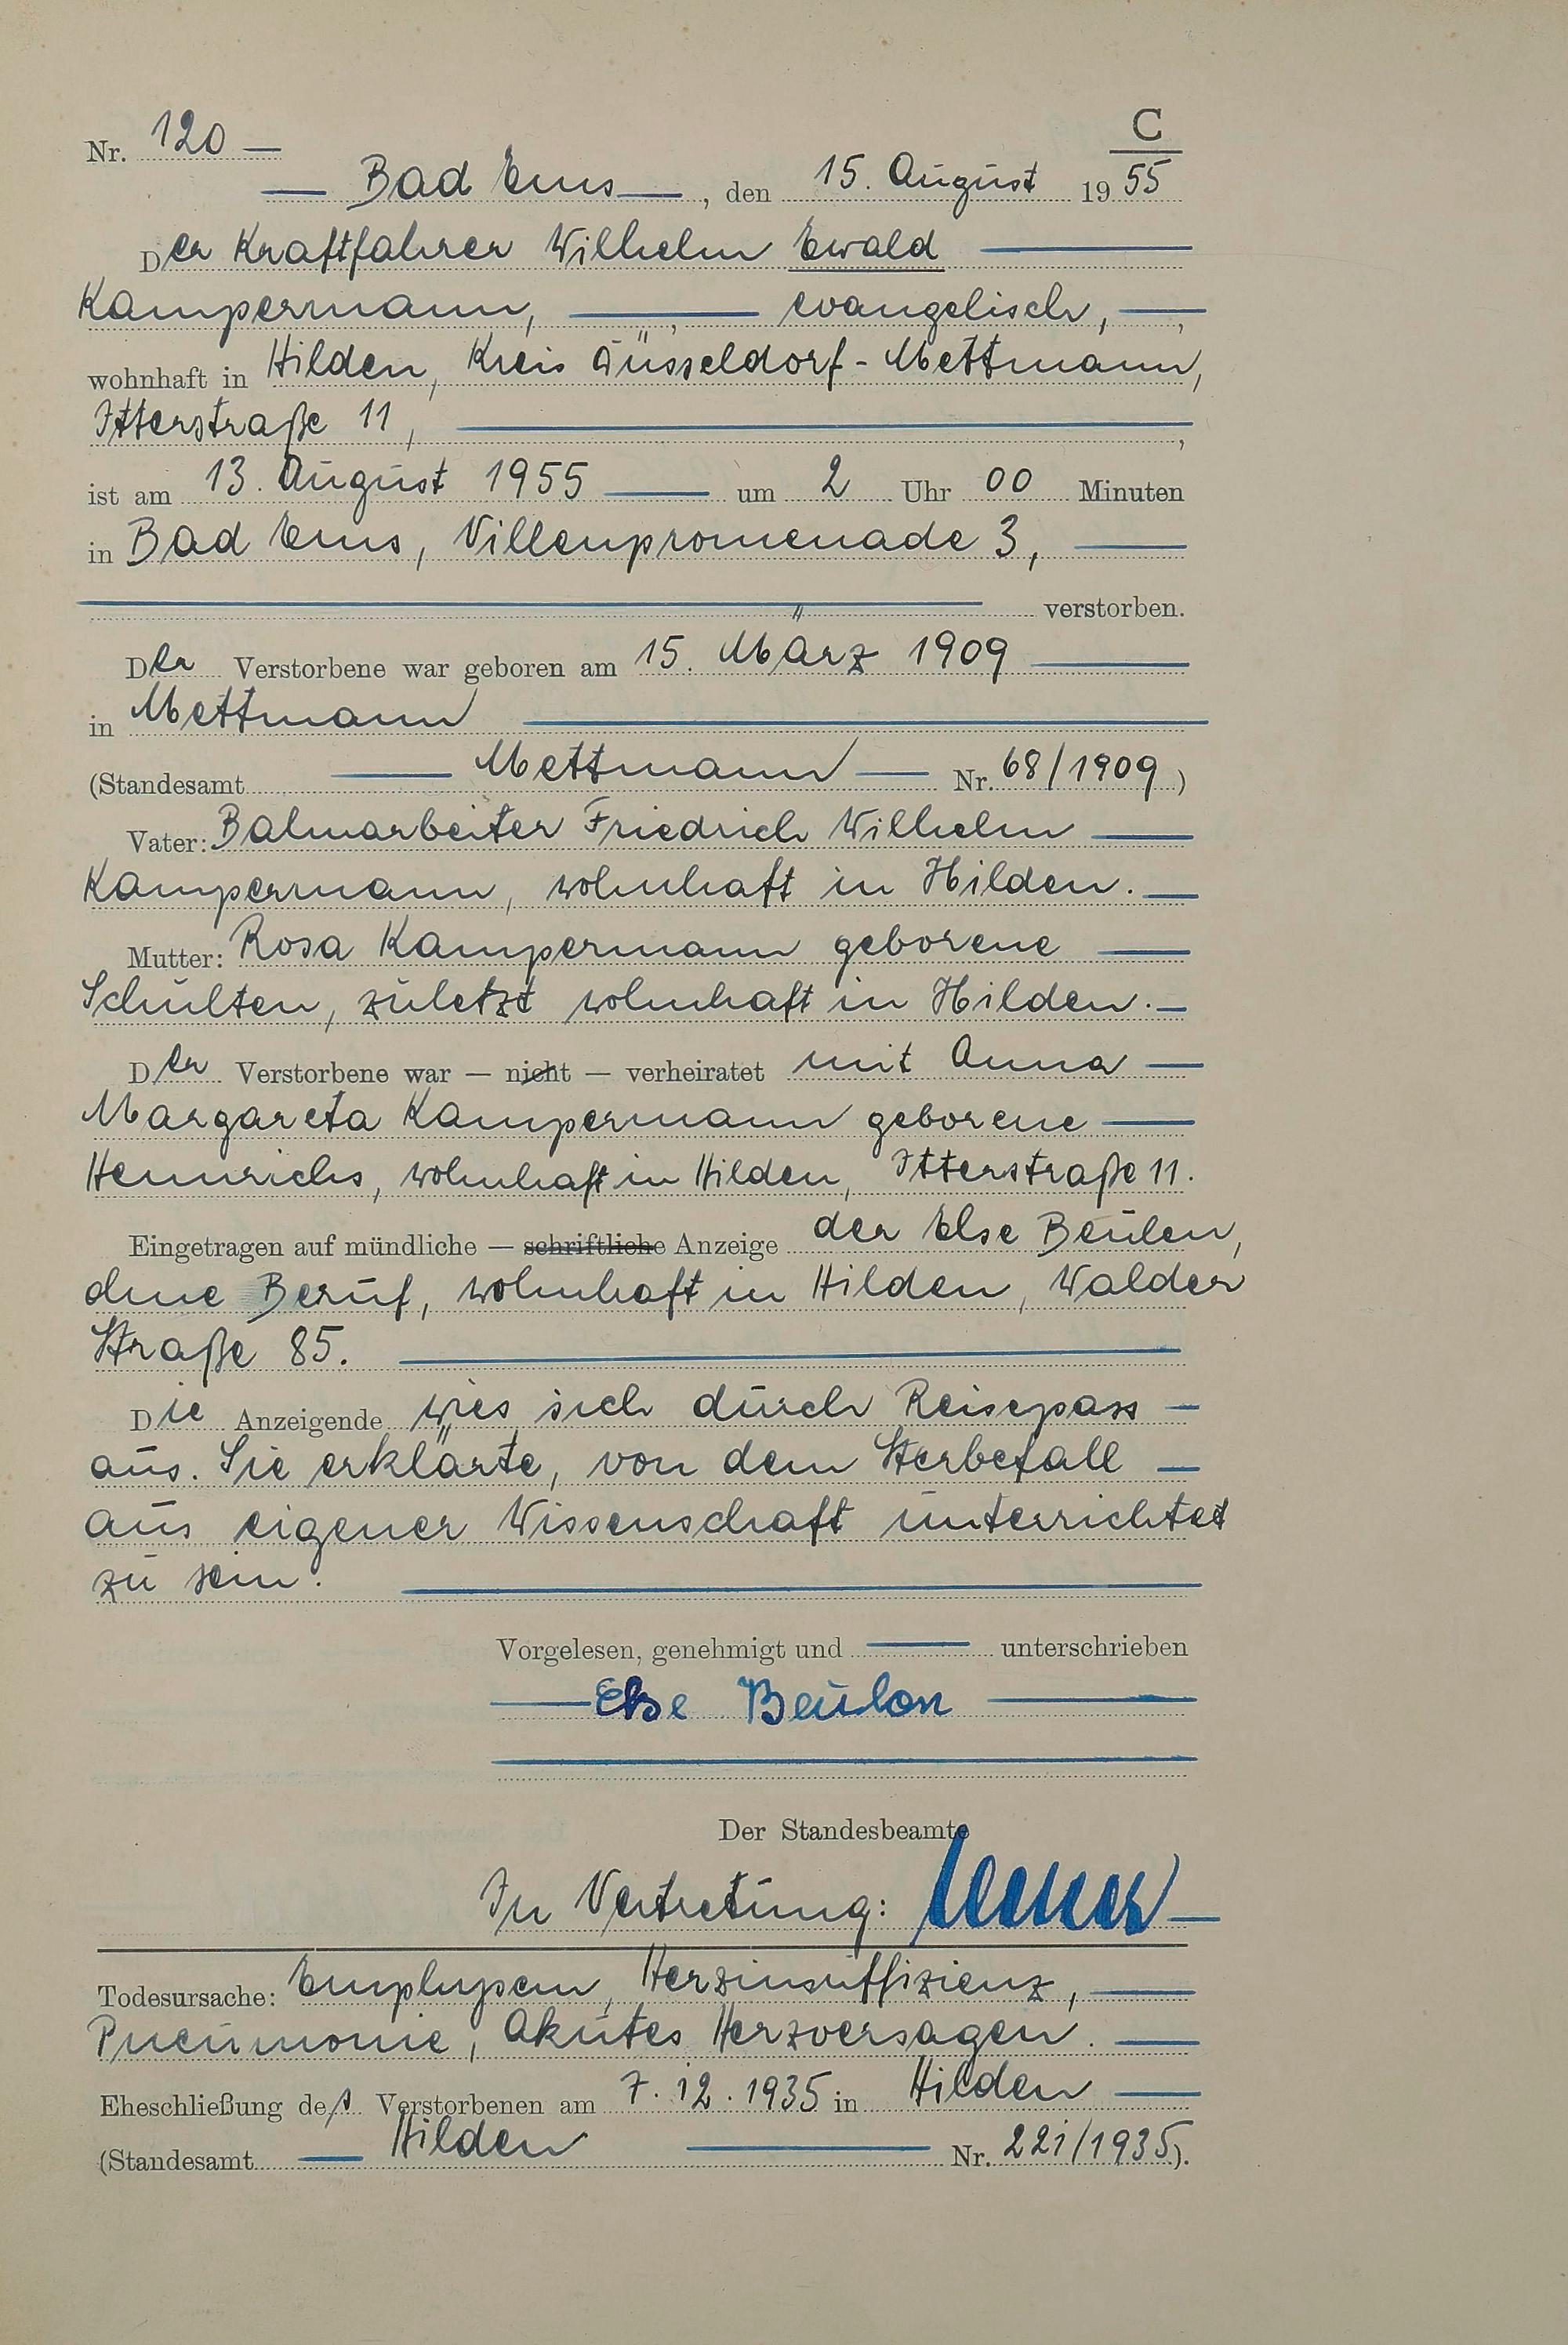 C
Nr. 120 —
— Bad Ems —, den 15. August 1955
Der Kraftfahrer Wilhelm Ewald —
Kampermann, — evangelisch, —,
wohnhaft in Hilden, Kreis Düsseldorf-Mettmann,
Itterstraße 11, —,
ist am 13. August 1955 — um 2 Uhr 00 Minuten
in Bad Ems, Villenpromenade 3, —
— verstorben.
Der Verstorbene war geboren am 15. März 1909 —
in Mettmann —
(Standesamt — Mettmann — Nr. 68/1909)
Vater: Bahnarbeiter Friedrich Wilhelm —
Kampermann, wohnhaft in Hilden. —
Mutter: Rosa Kampermann geborene —
Schulten, zuletzt wohnhaft in Hilden. —
Der Verstorbene war — nicht — verheiratet mit Anna —
Margareta Kampermann geborene —
Hennrichs, wohnhaft in Hilden, Itterstraße 11.
Eingetragen auf mündliche — schriftliche Anzeige der Else Beulen,
ohne Beruf, wohnhaft in Hilden, Walder
Straße 85. —
Die Anzeigende wies sich durch Reisepass —
aus. Sie erklärte, von dem Sterbefall —
aus eigener Wissenschaft unterrichtet
zu sein. —
Vorgelesen, genehmigt und — unterschrieben
— Else Beulen —
Der Standesbeamte
In Vertretung:
Todesursache: Emphysem, Herzinsuffizienz, —
Pneumonie, Akutes Herzversagen. —
Eheschließung des Verstorbenen am 7.12.1935 in Hilden —
(Standesamt — Hilden — Nr. 221/1935).